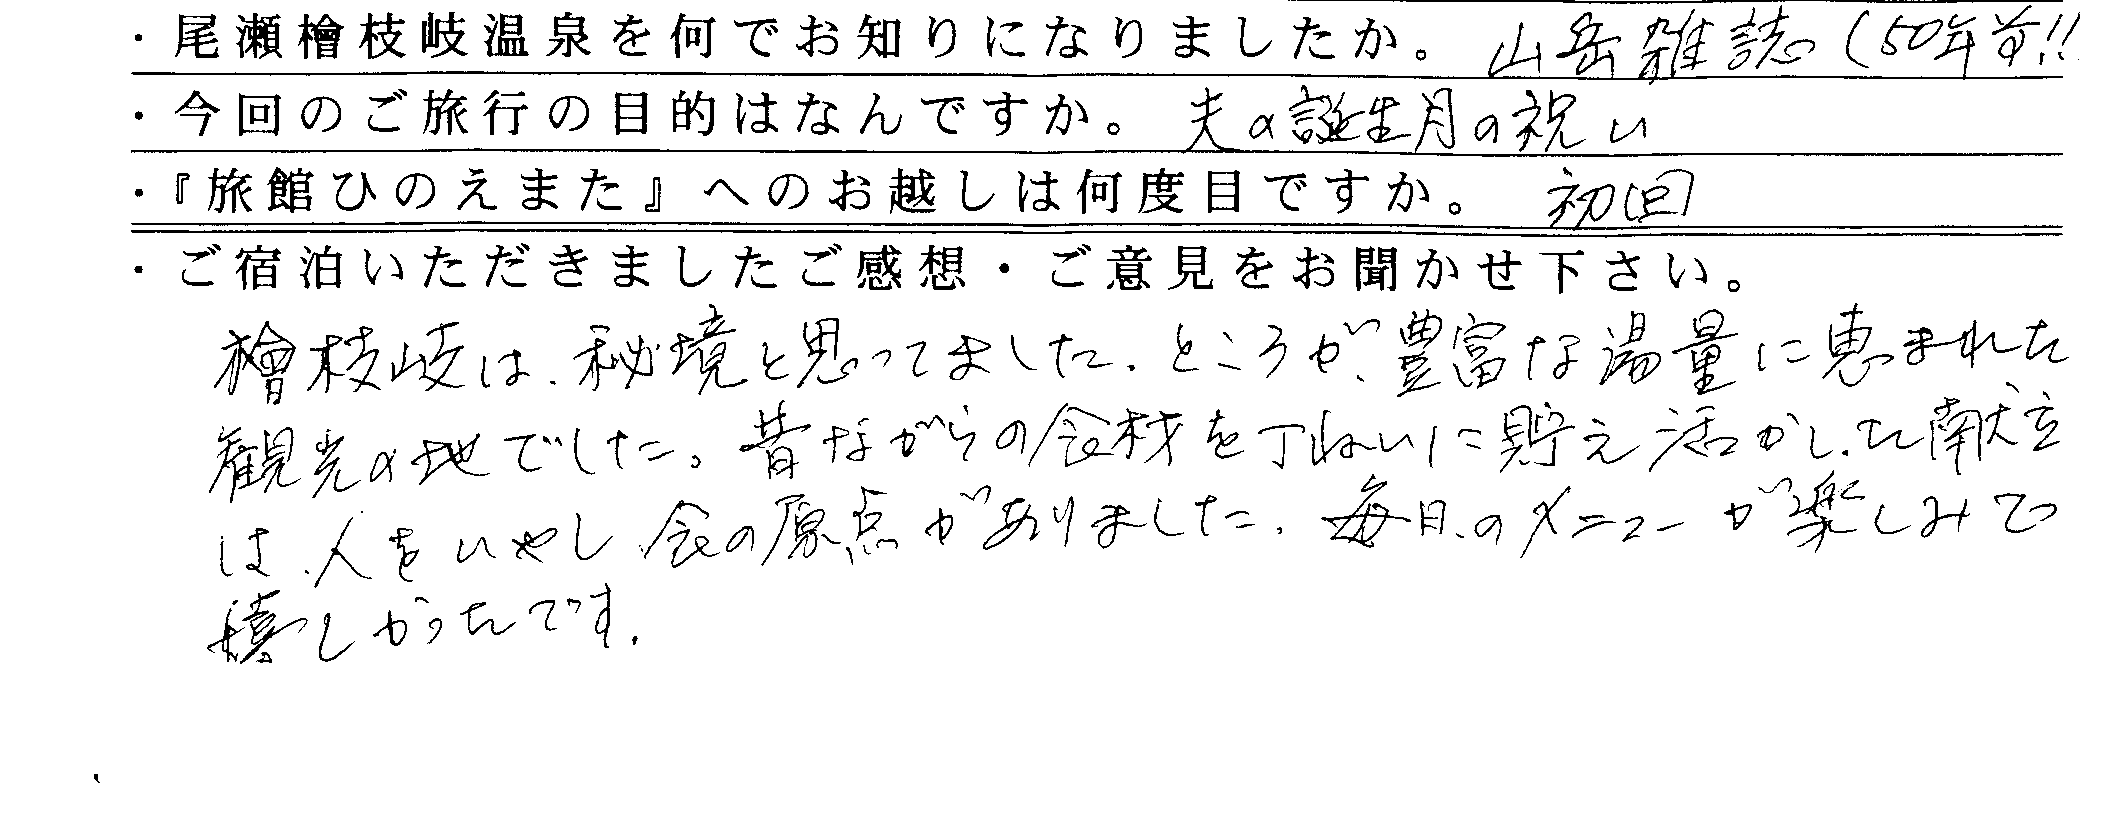 ・尾瀬檜枝岐温泉を何でお知りになりましたか。 山岳雑誌(50年前!!
・今回のご旅行の目的はなんですか。 夫の誕生月の祝い
・『旅館ひのえまた』へのお越しは何度目ですか。 初回
・ご宿泊いただきましたご感想・ご意見をお聞かせ下さい。
檜枝岐は、秘境と思ってました。ところが、豊富な湯量に恵まれた
観光の地でした。昔ながらの食材を丁ねいに貯え活かした献立
は、人をいやし食の原点がありました。毎日のメニューが楽しみで
嬉しかったです。